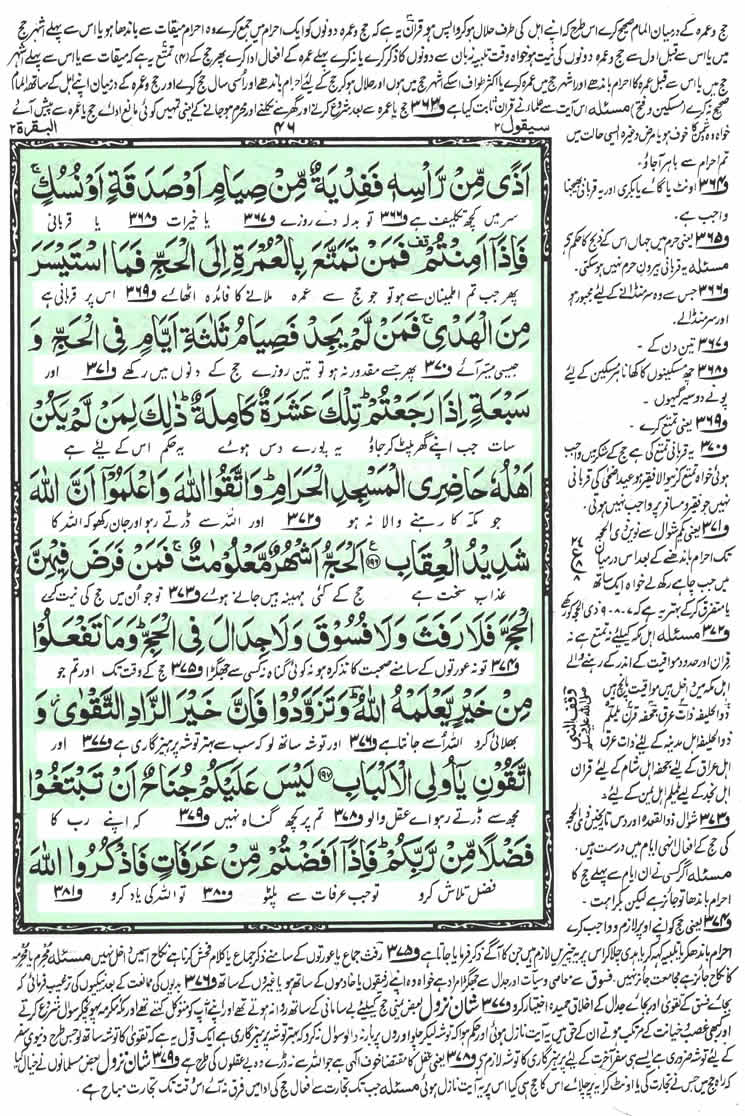 حج و عمرہ کے درمیان المام صحیح کرے اس طرح کہ اپنے اہل کی طرف حلال ہو کر واپس ہو قران یہ ہے کہ حج و عمرہ دونوں کو ایک احرام میں جمع کرے وہ احرام میقات سے باندھا ہو یا اس سے پہلے اشہر حج
میں یا اس سے قبل اول سے حج و عمرہ دونوں کی نیت ہو خواہ وقت تلبیہ زبان سے دونوں کا ذکر کرے یا نہ کرے پہلے عمرہ کے افعال ادا کرے پھر حج کے (۴) تمتع یہ ہے کہ میقات سے یا اس سے پہلے اشہر
حج میں یا اس سے قبل عمرہ کا احرام باندھے اور اشہر حج میں عمرہ کرے یا اکثر طواف اسکے اشہر حج میں ہوں اور حلال ہو کر حج کے لئے احرام باندھے اور اسی سال حج کرے اور حج و عمرہ کے درمیان اپنے اہل کے ساتھ المام
صحیح نہ کرے (مسکین و فتح) مسئلہ اس آیت سے علماء نے قران ثابت کیا ہے و۳۶۳ حج یا عمرہ سے بعد شروع کرنے اور گھر سے نکلنے اور محرم ہو جانے کے یعنی تمہیں کوئی مانع ادائے حج یا عمرہ سے پیش آئے
سیقول ۲
۴۶
البقرة ۲
اَذًى مِّنْ رَّاْسِهٖ فَفِدْيَةٌ مِّنْ صِيَامٍ اَوْ صَدَقَةٍ اَوْ نُسُكٍ ۚ
سر میں کچھ تکلیف ہے و۳۶۶ تو بدلہ دے روزے و۳۶۷ یا خیرات و۳۶۸ یا قربانی
فَاِذَاۤ اَمِنْتُمْ ٝ فَمَنْ تَمَتَّعَ بِالْعُمْرَةِ اِلَى الْحَجِّ فَمَا اسْتَيْسَرَ
پھر جب تم اطمینان سے ہو تو جو حج سے عمرہ ملانے کا فائدہ اٹھائے و۳۶۹ اس پر قربانی ہے
مِنَ الْهَدْيِ ۚ فَمَنْ لَّمْ يَجِدْ فَصِيَامُ ثَلٰثَةِ اَيَّامٍ فِى الْحَجِّ وَ
جیسی میسر آئے و۳۷۰ پھر جسے مقدور نہ ہو تو تین روزے حج کے دنوں میں رکھے و۳۷۱ اور
سَبْعَةٍ اِذَا رَجَعْتُمْ ؕ تِلْكَ عَشَرَةٌ كَامِلَةٌ ؕ ذٰلِكَ لِمَنْ لَّمْ يَكُنْ
سات جب اپنے گھر پلٹ کر جاؤ یہ پورے دس ہوئے یہ حکم اس کے لئے ہے
اَهْلُهٗ حَاضِرِى الْمَسْجِدِ الْحَرَامِ ؕ وَاتَّقُوا اللّٰهَ وَاعْلَمُوْۤا اَنَّ اللّٰهَ
جو مکہ کا رہنے والا نہ ہو و۳۷۲ اور اللہ سے ڈرتے رہو اور جان رکھو کہ اللہ کا
شَدِيْدُ الْعِقَابِ ﴿۱۹۶﴾ اَلْحَجُّ اَشْهُرٌ مَّعْلُوْمٰتٌ ۚ فَمَنْ فَرَضَ فِيْهِنَّ
عذاب سخت ہے حج کے کئی مہینہ ہیں جانے ہوئے و۳۷۳ تو جو اُن میں حج کی نیت کرے
الْحَجَّ فَلَا رَفَثَ وَلَا فُسُوْقَ وَلَا جِدَالَ فِى الْحَجِّ ؕ وَمَا تَفْعَلُوْا
و۳۷۴ تو نہ عورتوں کے سامنے صحبت کا تذکرہ ہو نہ کوئی گناہ نہ کسی سے جھگڑا و۳۷۵ حج کے وقت تک اور تم جو
مِنْ خَيْرٍ يَّعْلَمْهُ اللّٰهُ ؕ وَتَزَوَّدُوْا فَاِنَّ خَيْرَ الزَّادِ التَّقْوٰى ۫ وَ
بھلائی کرو اللہ اسے جانتا ہے و۳۷۶ اور توشہ ساتھ لو کہ سب سے بہتر توشہ پرہیزگاری ہے و۳۷۷ اور
اتَّقُوْنِ يٰۤاُولِى الْاَلْبَابِ ﴿۱۹۷﴾ لَيْسَ عَلَيْكُمْ جُنَاحٌ اَنْ تَبْتَغُوْا
مجھ سے ڈرتے رہو اے عقل والو و۳۷۸ تم پر کچھ گناہ نہیں و۳۷۹ کہ اپنے رب کا
فَضْلًا مِّنْ رَّبِّكُمْ ؕ فَاِذَاۤ اَفَضْتُمْ مِّنْ عَرَفَاتٍ فَاذْكُرُوا اللّٰهَ
فضل تلاش کرو تو جب عرفات سے پلٹو و۳۸۰ تو اللہ کی یاد کرو و۳۸۱
خواہ وہ دشمن کا خوف ہو یا مرض وغیرہ ایسی حالت میں
تم احرام سے باہر آجاؤ۔
و۳۶۴ اونٹ یا گائے یا بکری اور یہ قربانی بھیجنا
واجب ہے۔
و۳۶۵ یعنی حرم میں جہاں اس کے ذبح کا حکم ہے
مسئلہ یہ قربانی بیرون حرم نہیں ہو سکتی۔
و۳۶۶ جس سے وہ سر منڈانے کے لئے مجبور ہو
اور سر منڈالے۔
و۳۶۷ تین دن کے۔
و۳۶۸ چھ مسکینوں کا کھانا ہر مسکین کے لئے
پونے دو سیر گیہوں۔
و۳۶۹ یعنی تمتع کرے۔
و۳۷۰ یہ قربانی تمتع کی ہے حج کے شکر میں واجب
ہوئی خواہ تمتع کرنیوالا فقیر ہو عید اضحی کی قربانی
نہیں جو فقیر و مسافر پر واجب نہیں ہوتی۔
و۳۷۱ یعنی یکم شوال سے نویں ذی الحجہ
تک احرام باندھنے کے بعد اس درمیان
میں جب چاہے رکھ لے خواہ ایک ساتھ
یا متفرق کرکے بہتر یہ ہے کہ ۷-۸-۹ ذی الحجہ کو رکھے
و۳۷۲ مسئلہ اہل مکہ کیلئے نہ تمتع ہے نہ
قران اور حدود مواقیت کے اندر کے رہنے والے
اہل مکہ میں داخل ہیں مواقیت پانچ ہیں
ذوالحلیفہ ذات عرق جحفہ قرن یلملم
ذوالحلیفہ اہل مدینہ کے لئے ذات عرق
اہل عراق کے لئے جحفہ اہل شام کے لئے قرن
اہل نجد کے لئے یلملم اہل یمن کے لئے۔
و۳۷۳ شوال ذوالقعدہ اور دس تاریخیں ذی الحجہ
کی حج کے افعال انہی ایام میں درست ہیں۔
مسئلہ اگر کسی نے ان ایام سے پہلے حج کا
احرام باندھا تو جائز ہے لیکن بکراہت۔
و۳۷۴ یعنی حج کو اپنے اوپر لازم و واجب کرے
احرام باندھ کر یا تلبیہ کہہ کر یا ہدی چلا کر اس پر یہ چیزیں لازم ہیں جن کا آگے ذکر فرمایا جاتا ہے و۳۷۵ رفث جماع یا عورتوں کے سامنے ذکر جماع یا کلام فحش کرنا ہے نکاح اسمیں داخل نہیں مسئلہ محرم یا محرمہ
کا نکاح جائز ہے مجامعت جائز نہیں۔ فسوق سے معاصی و سیآت اور جدال سے جھگڑا مراد ہے خواہ وہ اپنے رفیقوں یا خادموں کے ساتھ ہو یا غیروں کے ساتھ و۳۷۶ بدیوں کی ممانعت کے بعد نیکیوں کی ترغیب فرمائی کہ
بجائے فسق کے تقوٰی اور بجائے جدال کے اخلاق حمیدہ اختیار کرو و۳۷۷ شان نزول بعض یمنی حج کیلئے بے سامانی کے ساتھ روانہ ہوتے تھے اور اپنے آپ کو متوکل کہتے تھے اور مکہ مکرمہ پہونچکر سوال شروع کرتے
اور کبھی غصب و خیانت کے مرتکب ہوتے ان کے حق میں یہ آیت نازل ہوئی اور حکم ہوا کہ توشہ لیکر چلو اوروں پر بار نہ ڈالو سوال نہ کرو کہ بہتر توشہ پرہیزگاری ہے ایک قول یہ ہے کہ تقوٰی کا توشہ ساتھ لو جس طرح دنیوی سفر
کے لئے توشہ ضروری ہے ایسے ہی سفر آخرت کے لئے پرہیزگاری کا توشہ لازم ہے و۳۷۸ یعنی عقل کا مقتضا خوف الٰہی ہے جو اللہ سے نہ ڈرے وہ بے عقلوں کی طرح ہے و۳۷۹ شان نزول بعض مسلمانوں نے خیال کیا
کہ راہ حج میں جس نے تجارت کی یا اونٹ کرایہ پر چلائے اس کا حج ہی کیا اس پر یہ آیت نازل ہوئی مسئلہ جب تک تجارت سے افعال حج کی ادا میں فرق نہ آئے اس وقت تک تجارت مباح ہے۔